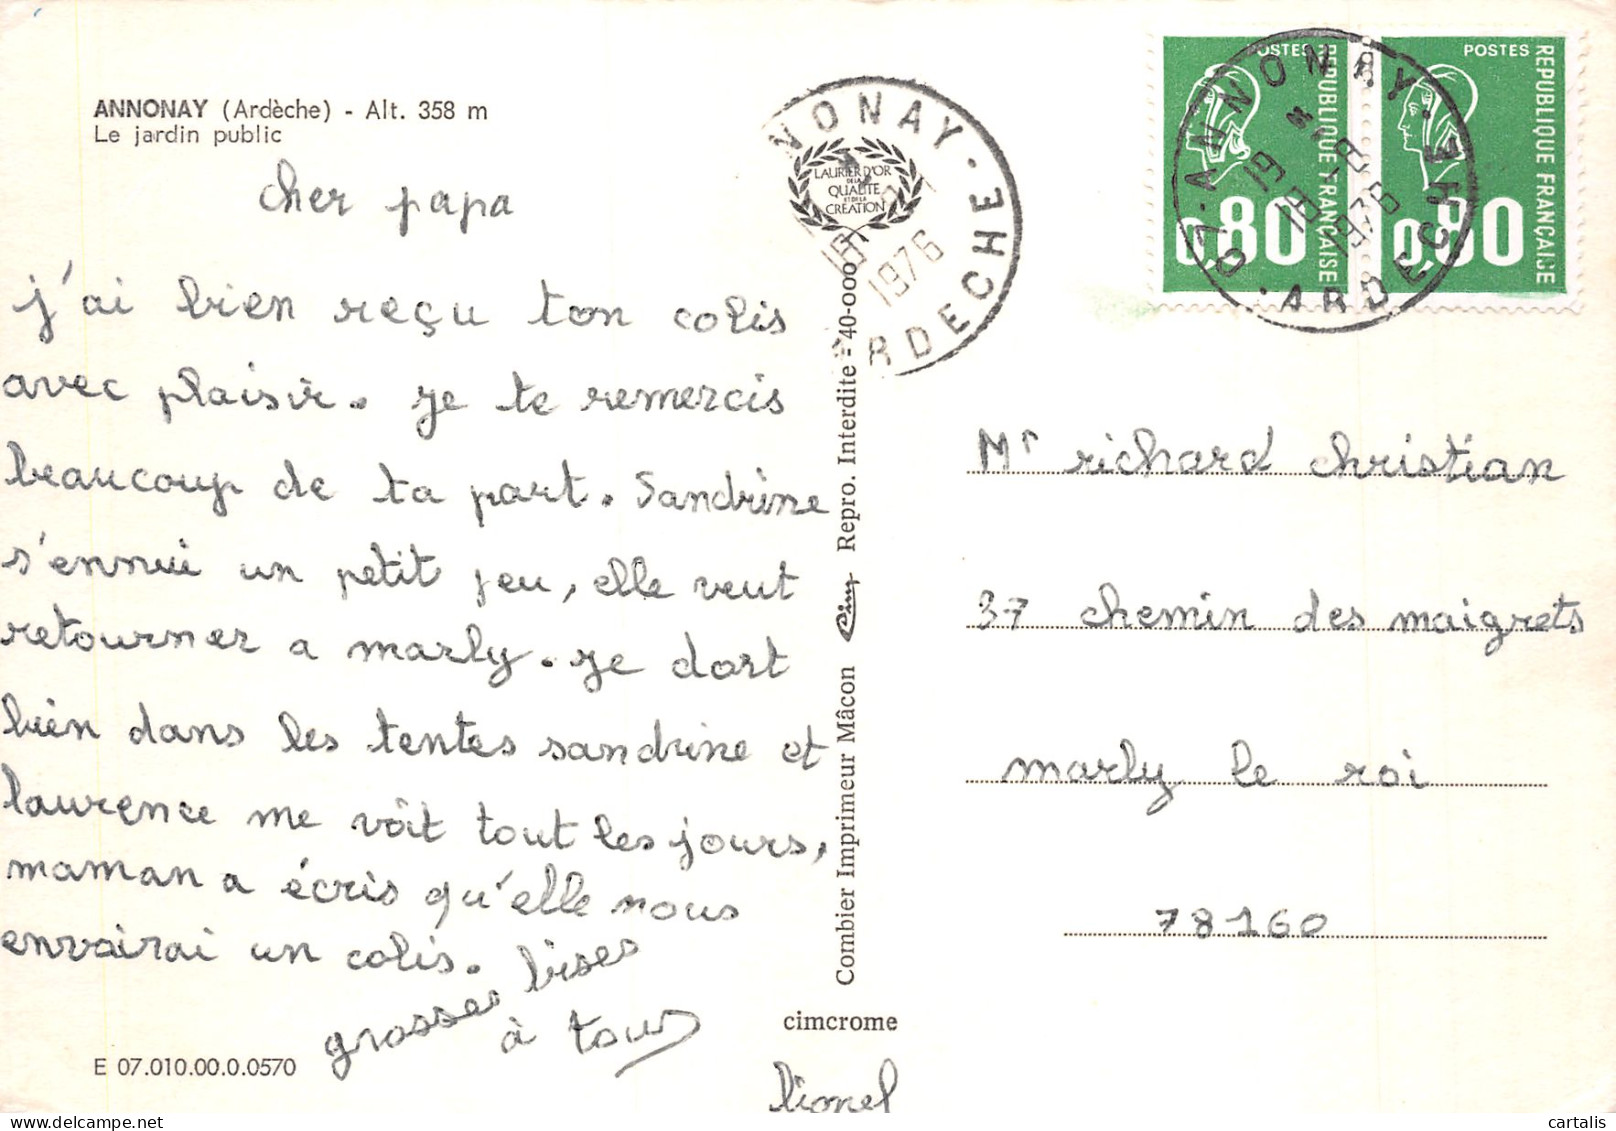 ANNONAY (Ardèche) - Alt. 358 m
Le jardin public
cher papa
j'ai bien reçu ton colis
avec plaisir. Je te remercis
beaucoup de ta part. Sandrine
s'ennui un petit jeu, elle veut
retourner a marly. Je dort
bien dans les tentes sandrine et
laurence me voit tout les jours,
maman a écris qu'elle nous
envairai un colis.
grosses bises
à tous
lionel
E 07.010.00.0.0570
cimcrome
Combier Imprimeur Mâcon Cim Repro. Interdite - 40-000
LAURIER D'OR
DE LA
QUALITE
ET DE LA
CREATION
NONAY · ARDECHE
18
1976
POSTES
REPUBLIQUE FRANÇAISE
0,80
POSTES
REPUBLIQUE FRANÇAISE
0,80
07·ANNONAY·
19 H
18-8
1976
·ARDECHE
Mr richard christian
37 chemin des maigrets
marly le roi
78160